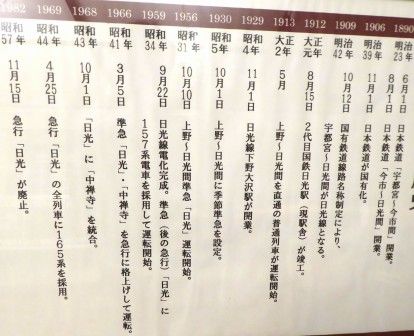 1890
明治23年
6月1日
日本鉄道「宇都宮~今市間」開業。
8月1日
日本鉄道「今市~日光間」開業。
1906
明治39年
11月1日
日本鉄道が国有化。
1909
明治42年
10月12日
国有鉄道線路名称制定により、
宇都宮~日光間が日光線となる。
1912
大正元年
8月15日
2代目国鉄日光駅(現駅舎)が竣工。
1913
大正2年
5月
上野~日光間を直通の普通列車が運転開始。
1929
昭和4年
11月1日
日光線下野大沢駅が開業。
1930
昭和5年
10月1日
上野~日光間に季節準急を設定。
1956
昭和31年
10月10日
上野~日光間準急「日光」運転開始。
1959
昭和34年
9月22日
日光線電化完成。準急(後の急行)「日光」に
157系電車を採用して運転開始。
1966
昭和41年
3月5日
準急「日光」・「中禅寺」を急行に格上げして運転。
1968
昭和43年
10月1日
「日光」に「中禅寺」を統合。
1969
昭和44年
4月25日
急行「日光」の全列車に165系を採用。
1982
昭和57年
11月15日
急行「日光」が廃止。